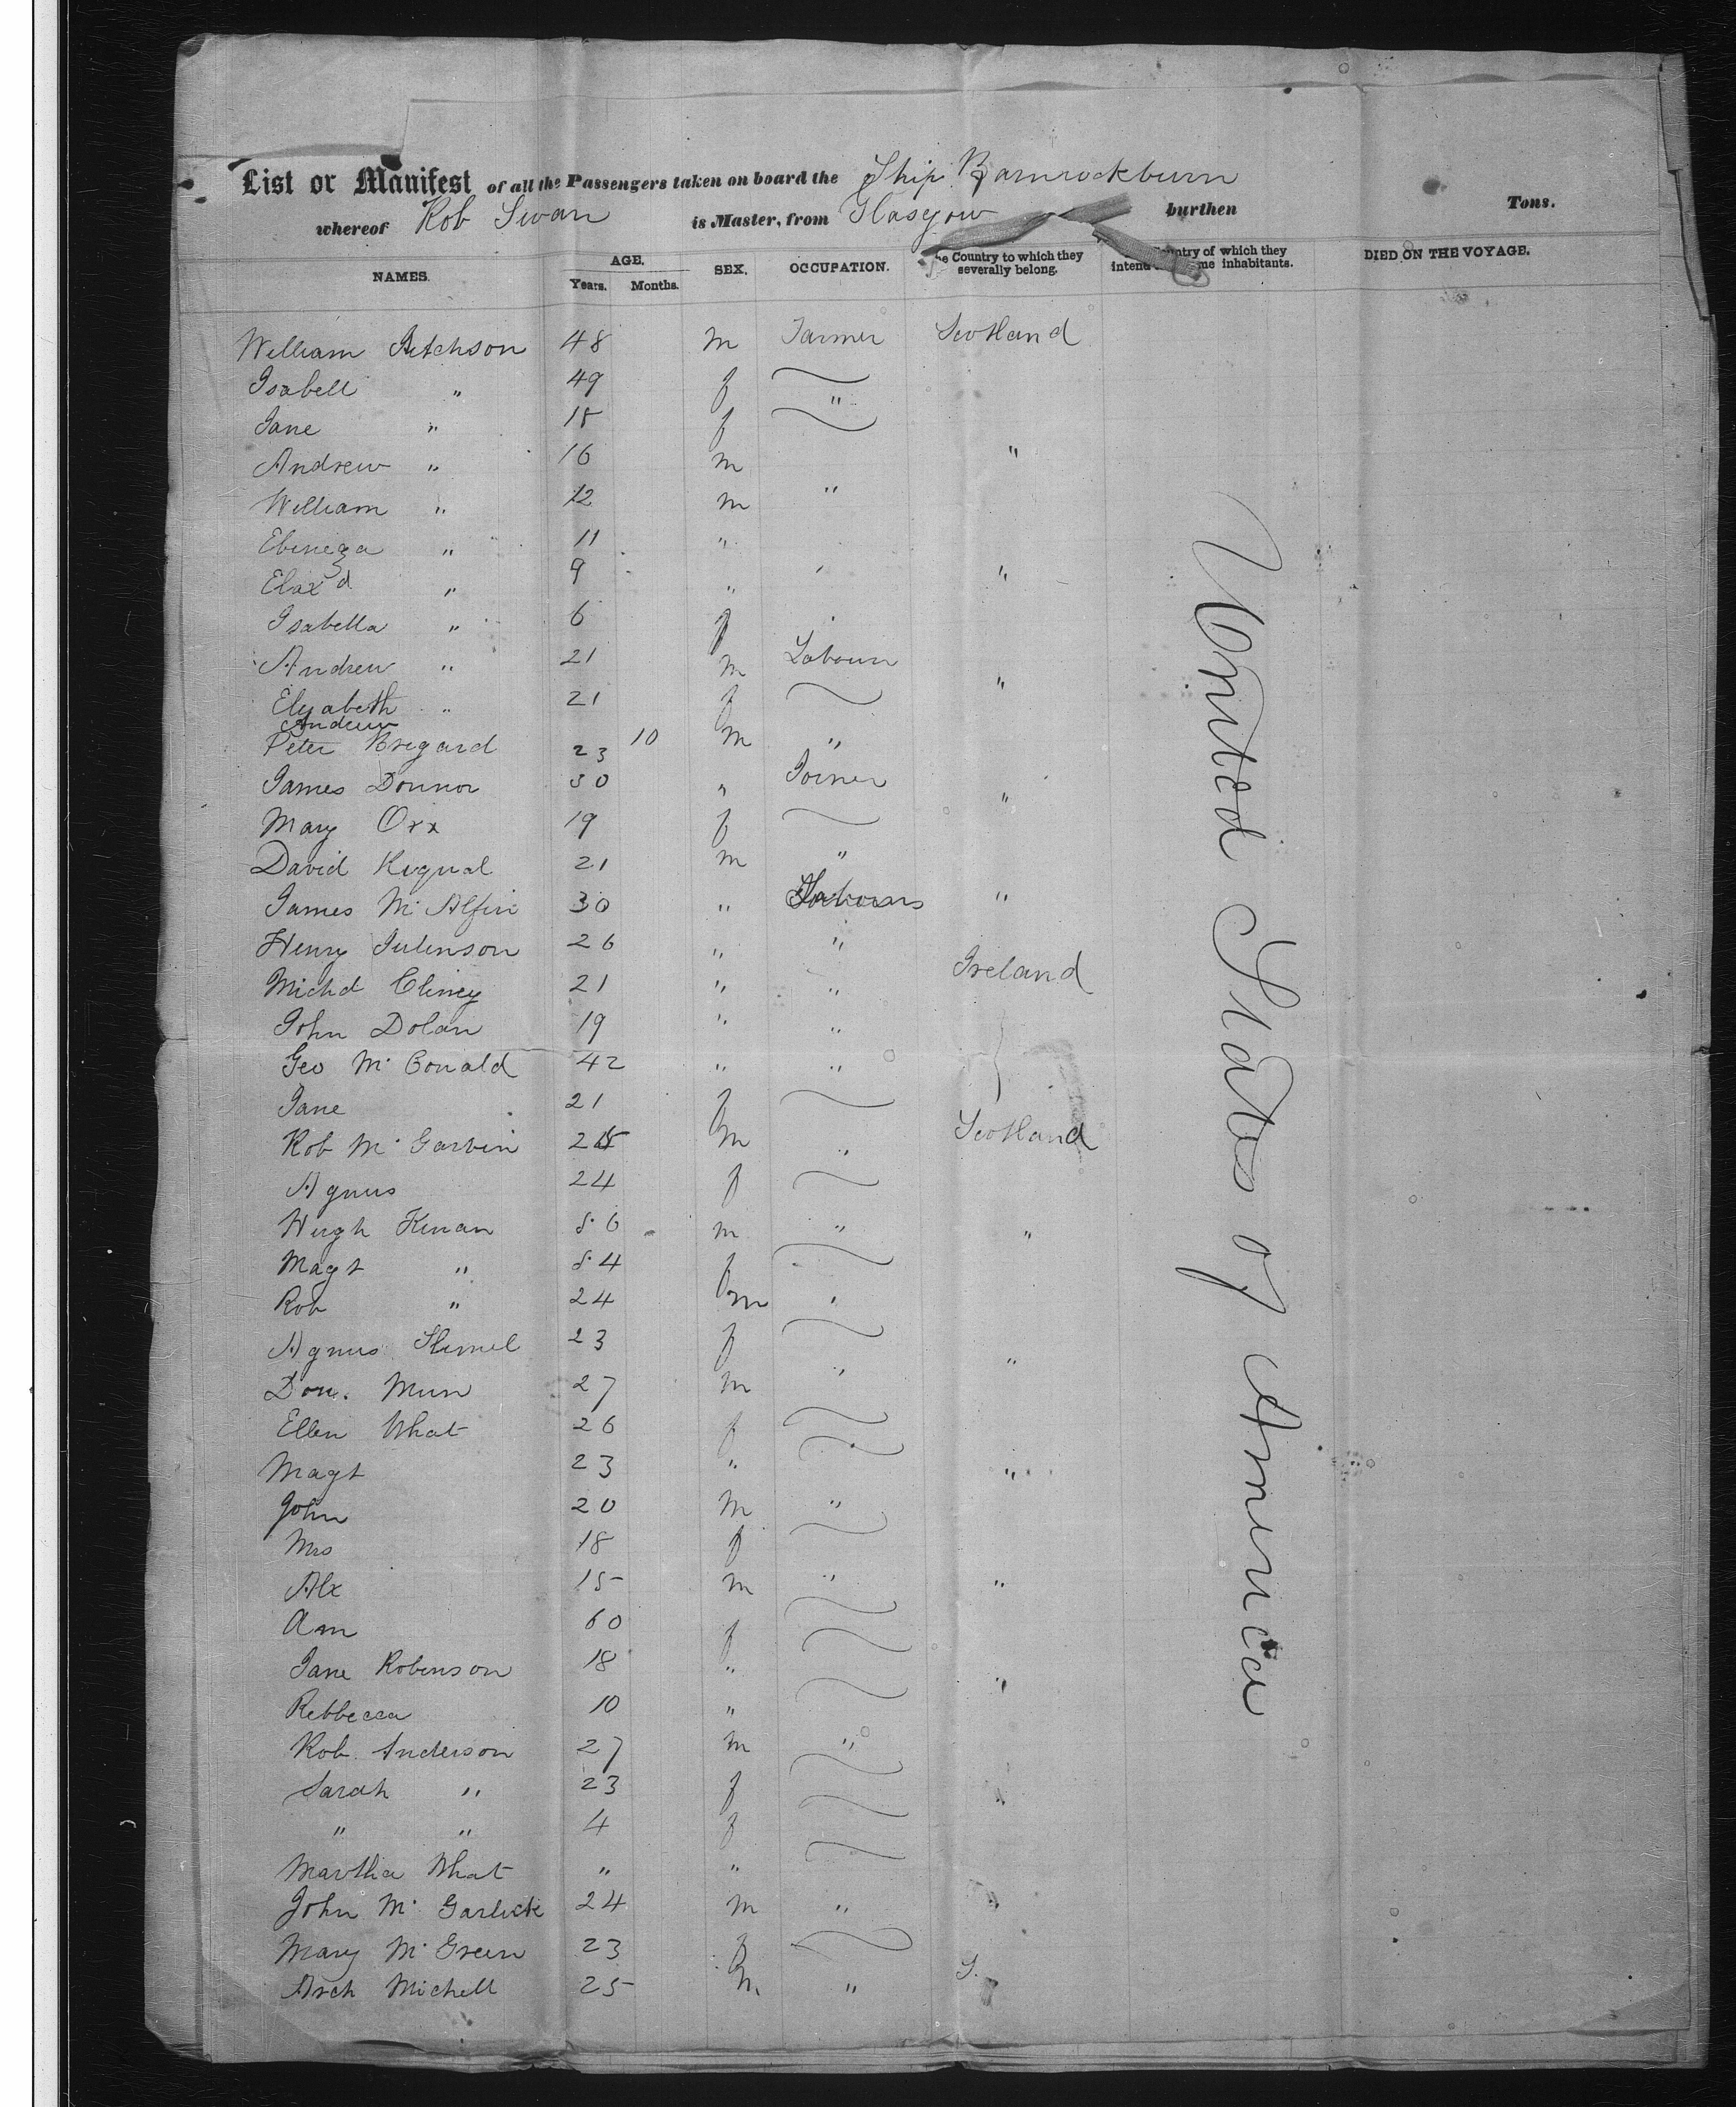 List or Manifest of all the Passengers taken on board the Ship Bannockburn
whereof Rob Swan is Master, from Glasgow burthen Tons.
NAMES. AGE. Years. Months. SEX. OCCUPATION. he Country to which they severally belong. Country of which they intend me inhabitants. DIED ON THE VOYAGE.
William Aitchson 48 m Farmer Scotland
Isabell " 49 f "
Jane " 18 f
Andrew " 16 m "
William " 12 m "
Ebineza " 11 "
Elax d " 9 " "
Isabella " 6 f
Andrew " 21 m Labour
Elyabeth " 21 f "
Andrew 10
Peter Bregard 23 m "
James Donnor 30 " Joiner
Mary Orr 19 f "
David 21 m "
James Mc Alfin 30 " Labours "
Henry 26 " "
Michd Cliney 21 " " Ireland
John Dolan 19 " "
Geo Mc Conald 42 " "
Jane 21 f
Rob Mc Garvin 25 m " Scotland
Agnus 24 f
Hugh Kenan 56 m " "
Magt " 54 f
Rob " 24 m "
Agnus 23 f "
Don. Mun 27 m "
Ellen What 26 f
Magt 23 " "
John 20 m "
Mrs 18 f
Alx 15 m " "
Ann 60 f
Jane Robinson 18 " "
Rebbecca 10 "
Rob. Anderson 27 m "
Sarah " 23 f "
" " 4 f
Martha What " "
John Mc Garlick 24 m " "
Mary Mc Green 23 f
Arch Michell 25 m " S.
United States of America